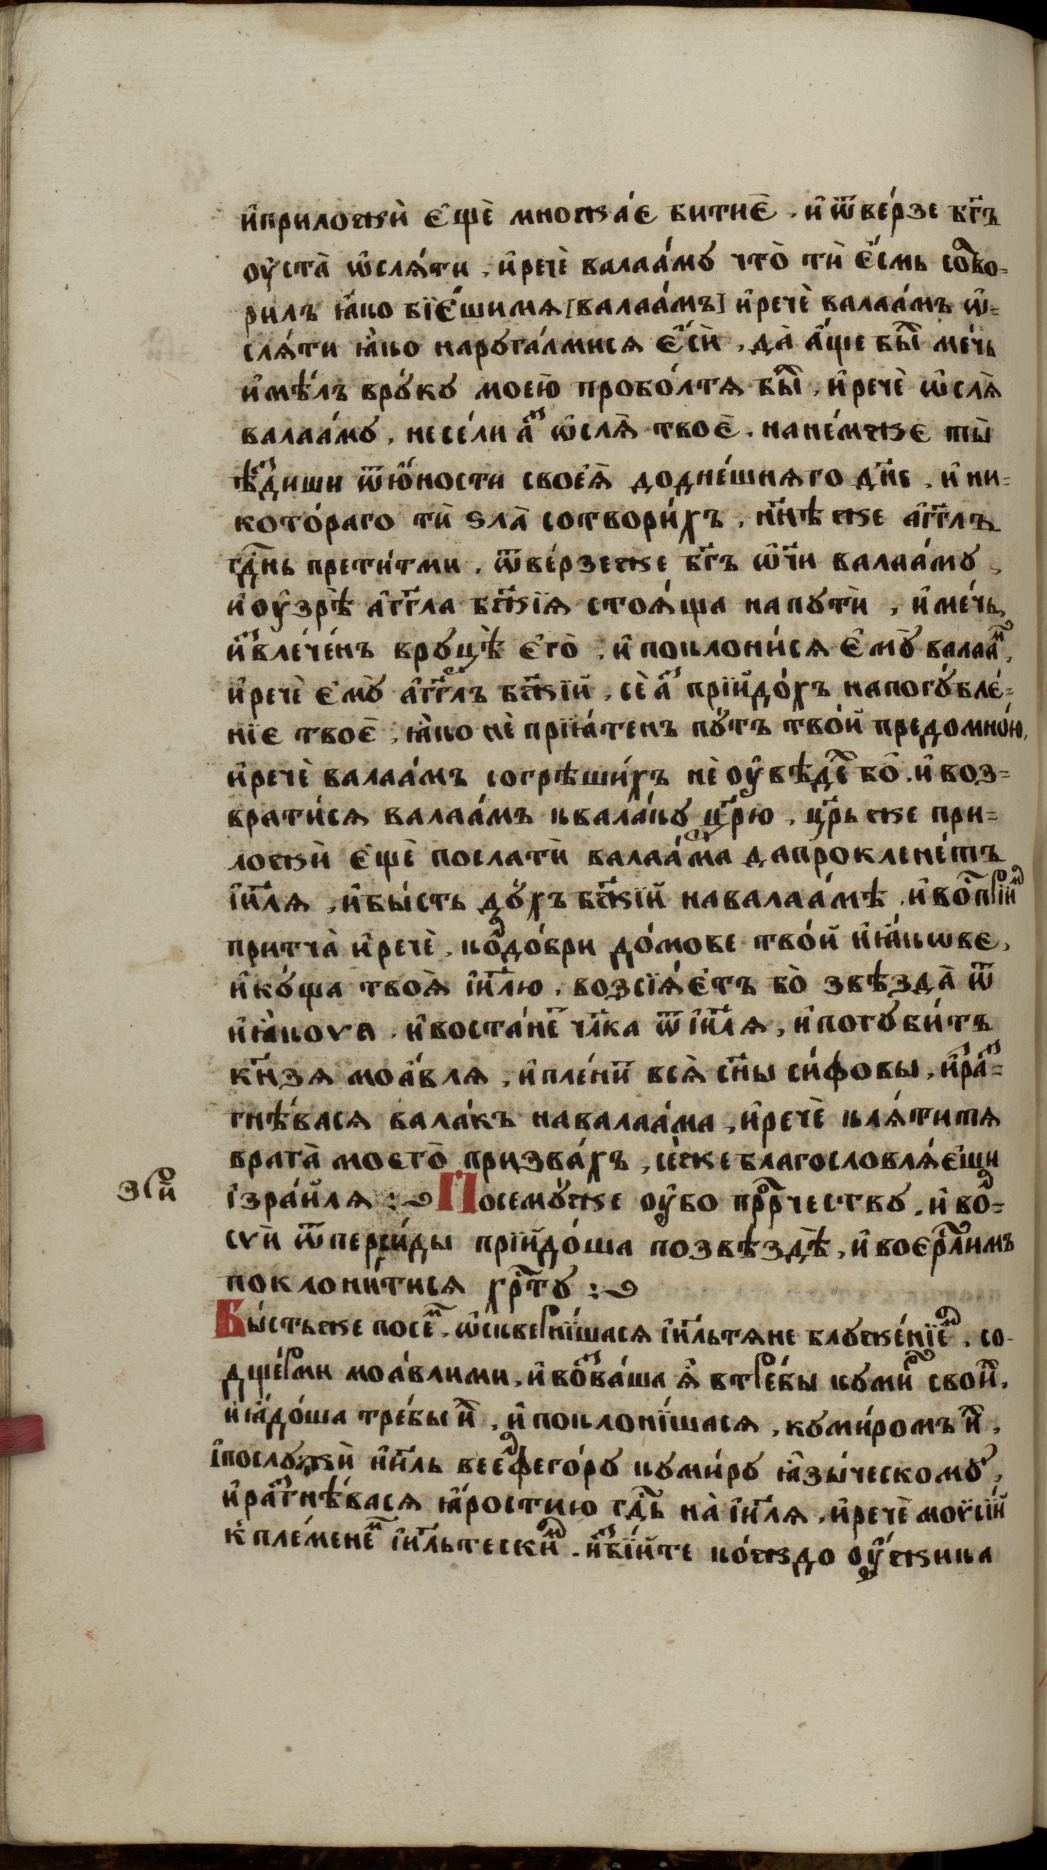 и҆приложѝ є҆щѐ множа́є битиѐ . и҆ ѿве́рзе бг҃ъ
оу҆ста̀ ѡ҆сля́ти , и҆речѐ валаа́му что̀ тѝ є҆́смь сотво-
рилъ ꙗ҆́ко бїе́шимѧ [валаа́мъ] и҆речѐ валаа́мъ ѡ҆-
сля́ти ꙗ҆́ко наруга́лмисѧ є҆сѝ , да̀ а҆́ще бы̀ мечь
и҆мѣ́лъ вру́ку моею̀ пробо́лтѧ бы̀ , и҆речѐ ѡ҆сля̀
валаа́му , несе́ли а҆́зъ ѡ҆сля̀ твоѐ . нане́мже ты̀
ѣ҆́здиши ѿю҆́ности своеѧ̀ додне́шнѧго дн҃е , и҆ ни-
кото́раго тѝ ѕла̀ сотвори́хъ , нн҃ѣ же а҆гг҃лъ
гд҃нь прети́тми . ѿве́рзеже бг҃ъ ѡ҆́чи валаа́му ,
и҆ оу҆зрѣ̀ а҆́гг҃ла бж҃їѧ стоѧ́ща напутѝ , и҆ ме́чь
и҆звле́ченъ вруцѣ̀ є҆го̀ , и҆ поклони́сѧ є҆му̀ валаа́мъ ,
и҆речѐ є҆му̀ а҆́гг҃лъ бж҃їй , сѐ а҆́зъ прїйдо́хъ напогубле́-
нїе твоѐ , ꙗ҆́ко нѐ прїꙗ́тенъ пу́тъ тво́й предомно́ю ,
и҆речѐ валаа́мъ согрѣши́хъ нѐ оу҆вѣ́дѣх бо̀ . и҆ воз-
врати́сѧ валаа́мъ квала́ку цр҃ю , цр҃ь же при-
ложѝ є҆щѐ послатѝ валаа́ма дапроклене́тъ
і҆и҃лѧ , и҆бы́сть ду́хъ бж҃їй навалаа́мѣ , и҆ воспрїим
притча̀ и҆речѐ , ко́ль до́бри до́мове тво́й и҆ꙗ́кѡве ,
и҆ку́ща твоѧ̀ і҆и҃лю . возсїѧ́етъ бо̀ звѣзда̀ ѿ
и҆ꙗ́коva . и҆воста́нет чл҃ка ѿ і҆и҃лѧ , и҆погуби́тъ
кн҃зѧ моа́влѧ , и҆плени́т всѧ̀ сн҃ы си́фовы , и҆раз-
гнѣ́васѧ вала́къ навалаа́ма , и҆речѐ клѧ́титѧ
врага̀ моего̀ призва́хъ , се́же благословлѧ́еши
і҆зра́йлѧ : Посему́же оу҆́бо прⷪ҇рчеству . и҆ вол-
сvѝ ѿперси́ды прїйдо́ша позвѣздѣ̀ , и҆ воер҃лимъ
поклонитисѧ хрⷭ҇ту :
зри
Бы́стьже посем . ѡ҆скверни́шасѧ і҆и҃льтѧне блуже́нїем . со
дще́рми моа́влими , и҆ возва́ша ѧ҆̀ втре́бы куми́р свои́х ,
и ꙗ҆до́ша тре́бы и҆́х , и҆ поклони́шасѧ , куми́ромъ и҆́х ,
і҆послужѝ и҆и҃ль веелфего́ру куми́ру ꙗ҆зы́ческому ,
и҆разгнѣ́васѧ ꙗ҆́ростию гд҃ь на̀ і҆и҃лѧ , и҆речѐ моѵсі́й
к̾пле́менем і҆и҃льтеским . и҆збі́йте ко́ждо оу҆́жика